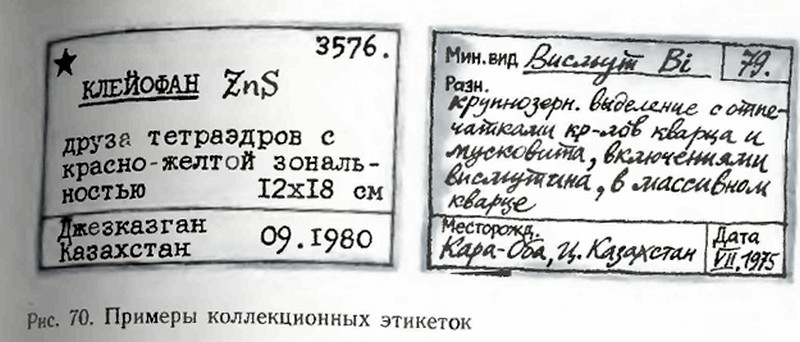 3576.
КЛЕЙОФАН ZnS
друза тетраэдров с
красно-желтой зональ-
ностью 12х18 см
Джезказган
Казахстан
09.1980
Мин.вид Висмут Bi 79.
Разн.
крупнозерн. выделение с отпе-
чатками кр-лов кварца и
мусковита, включениями
висмутина, в массивном
кварце
Месторожд.
Кара-Оба, Ц. Казахстан
Дата
VII.1975
Рис. 70. Примеры коллекционных этикеток